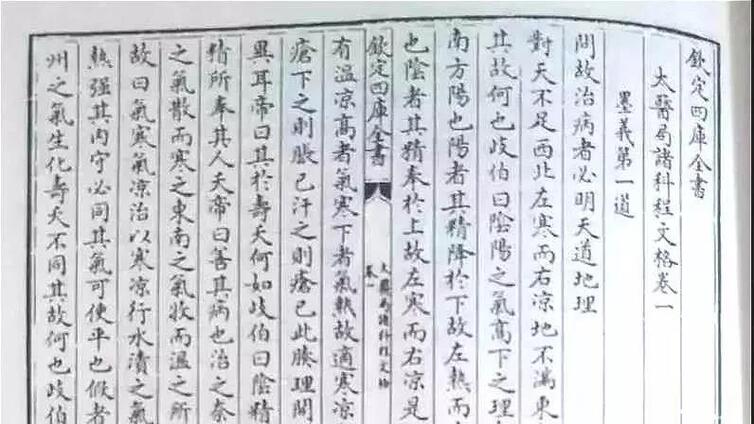 欽定四庫全書
太醫局諸科程文格卷一
墨義第一道
問故治病者必明天道地理
對天不足西北左寒而右凉地不滿東
其故何也岐伯曰陰陽之氣髙下之理
南方陽也陽者其精降於下故左熱而
也陰者其精奉於上故左寒而右凉是
欽定四庫全書
太醫局諸科程文格
卷一
有温凉髙者氣寒下者氣熱故適寒凉
瘡下之則脹已汗之則瘡已此腠理開
異耳帝曰其於壽夭何如岐伯曰陰精
精所奉其人夭帝曰善其病也治之奈
之氣散而寒之東南之氣收而温之所
故曰氣寒氣凉治以寒凉行水漬之氣
熱强其内守必同其氣可使平也假者
州之氣生化壽夭不同其故何也岐伯